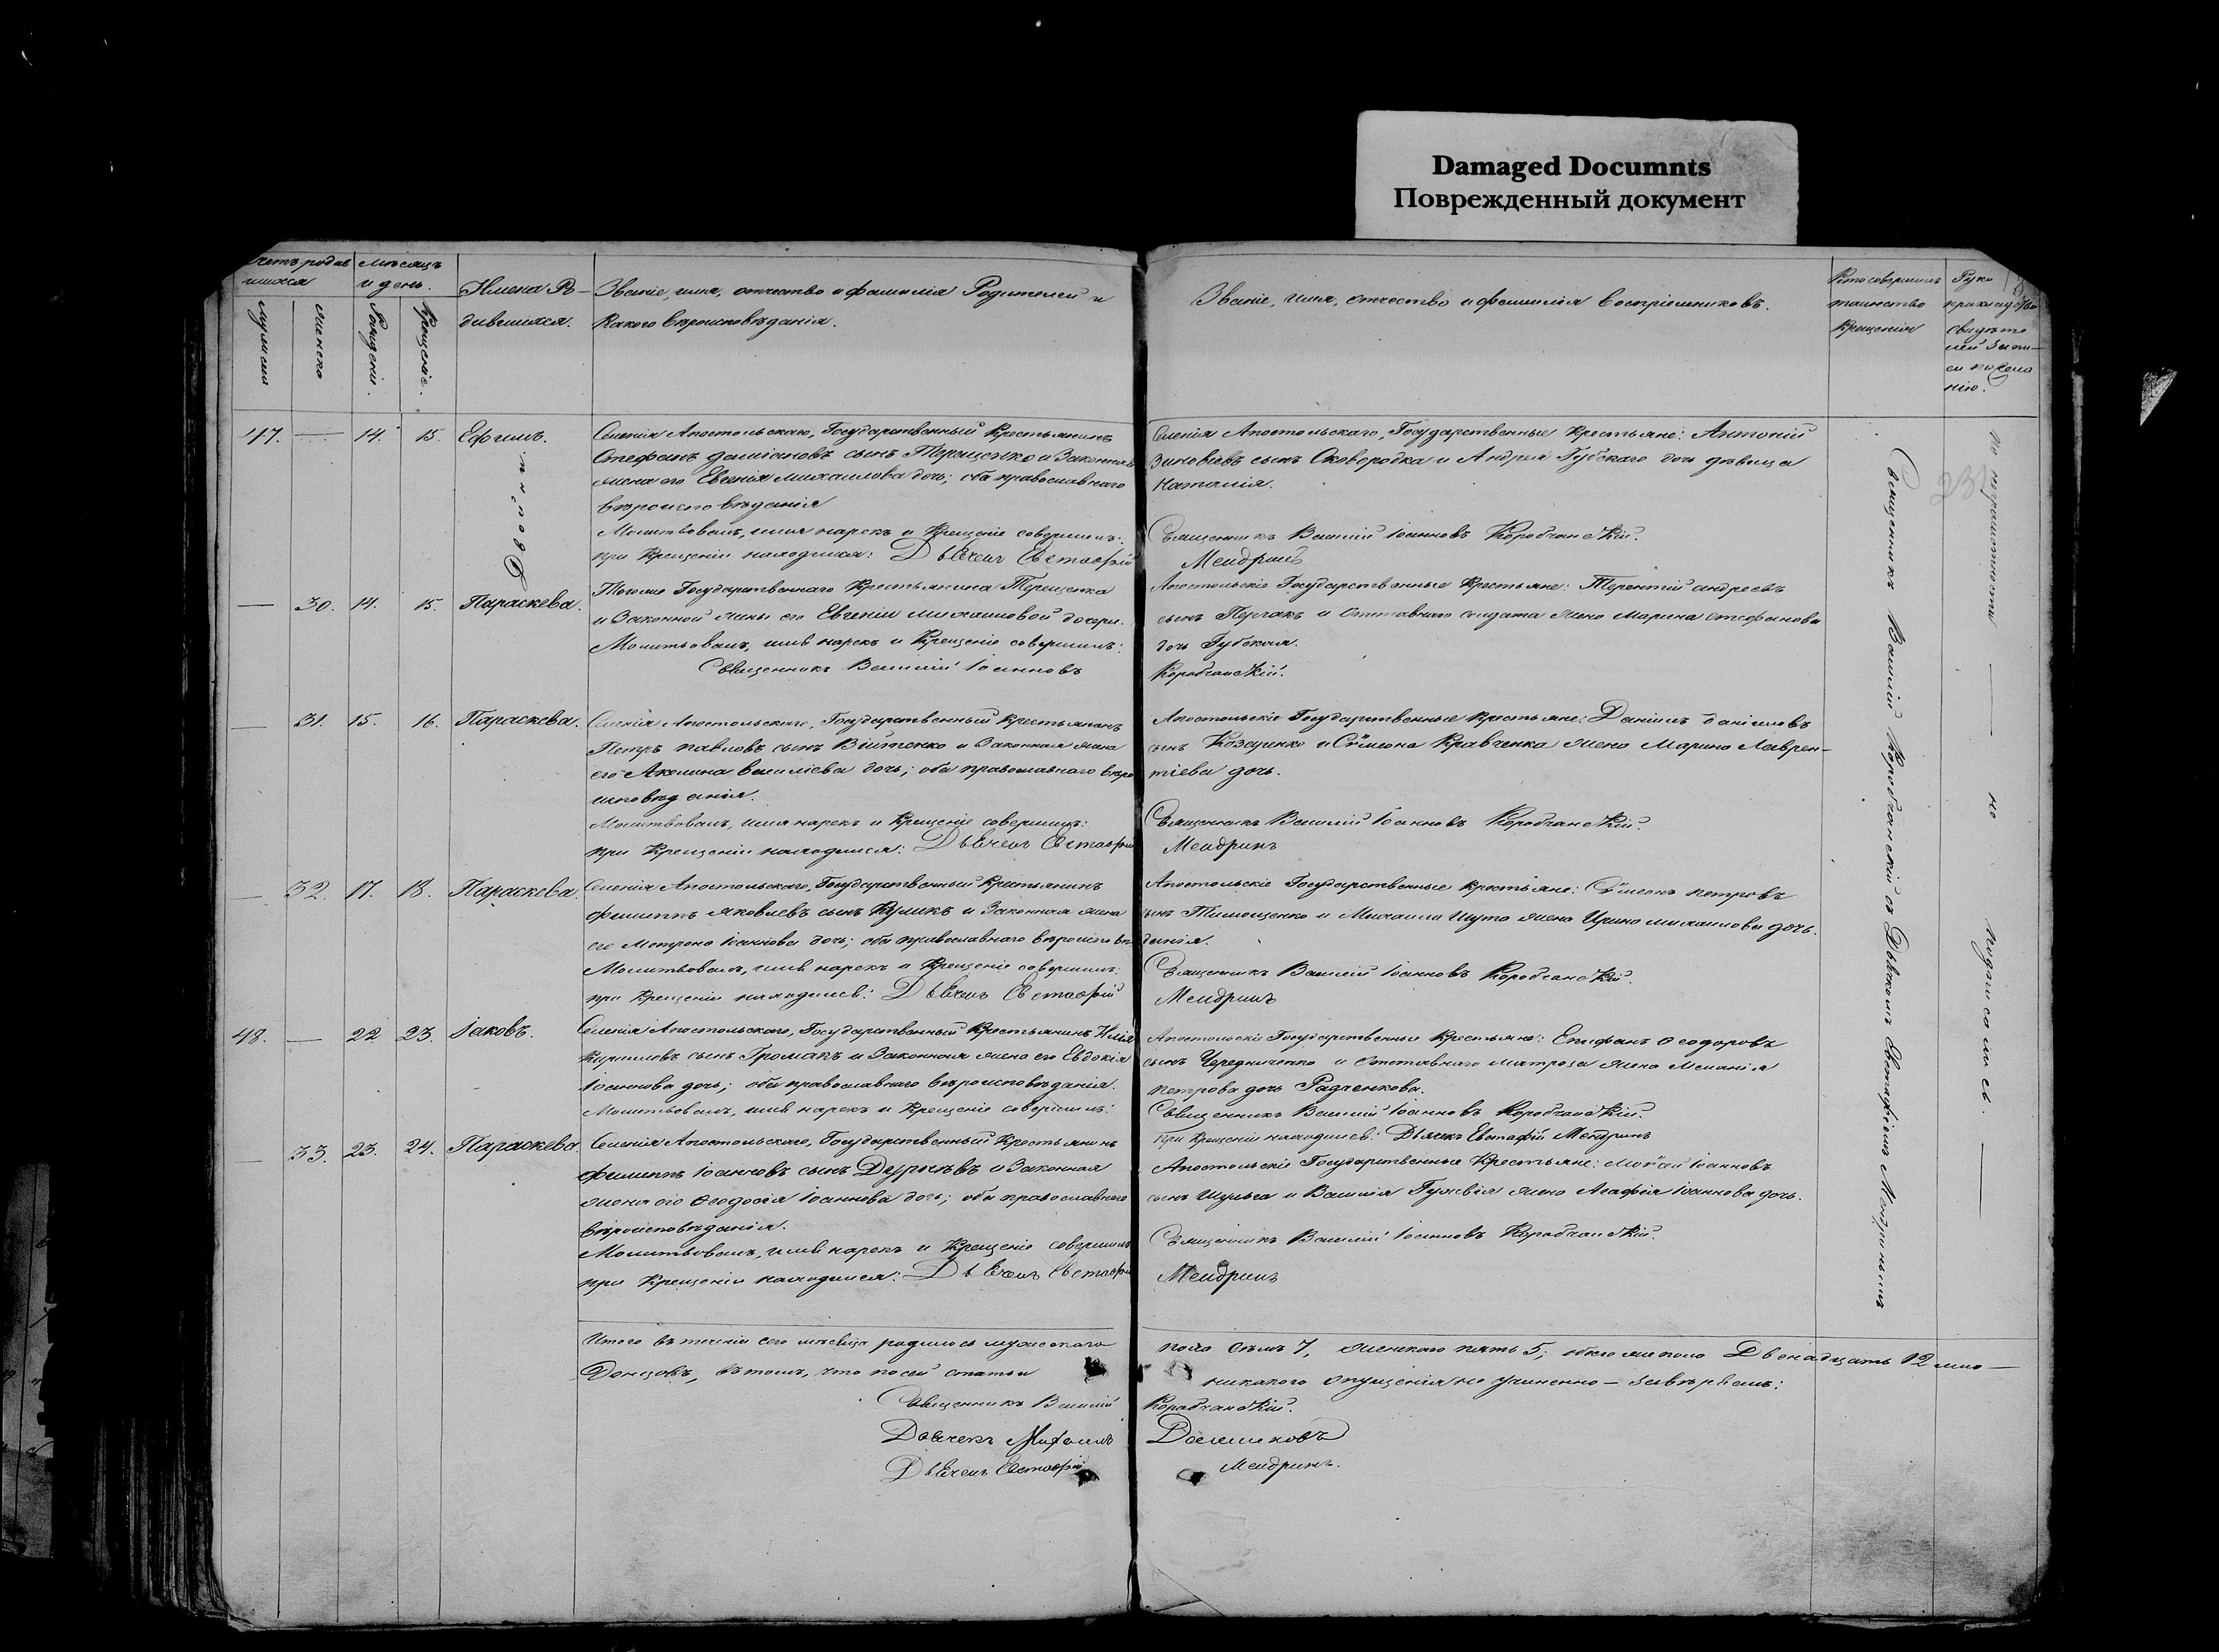 Damaged Documnts
Поврежденный документ
Имена Ро-
дившихся.
Званіе, имя, отчество и фамилія Родителей и
Какого вѣроисповѣданія.
Званіе, имя, отчество и фамилія воспріемниковъ.
Кто совершилъ
таинство
крещенія
мѣсяцъ
и день.
мужеска
женска
Рожденія.
Крещенія.
47. — 14. 15. Ефимъ.
Двойни.
Селенія Апостольскаго, Государственный Крестьянинъ
Стефанъ даміановъ сынъ Терещенко и Законная
жена его Евгенія михаилова дочь; оба православнаго
вѣроисповѣданія
Молитвовалъ, имя нарекъ и Крещеніе совершилъ:
при Крещеніи находился: Дьячекъ Евстафій
Селенія Апостольскаго, Государственные Крестьяне: Антоній
Зиновіевъ сынъ Сковородка и Андрея Губскаго дочь дѣвица
Наталія.
Священникъ Василій Іоанновъ Коробчанскій.
Мендринъ
— 30. 14. 15. Параскева.
Тогоже Государственнаго Крестьянина Терещенка
и Законной жены его Евгеніи михаиловой дочери.
Молитвовалъ, имя нарекъ и Крещеніе совершилъ:
Священникъ Василій Іоанновъ
Апостольскіе Государственные Крестьяне: Терентій андреевъ
сынъ и отставнаго солдата жена Марина стефанова
дочь Губская.
Коробчанскій.
— 31. 15. 16. Параскева.
Селенія Апостольскаго, Государственный Крестьянинъ
Петръ павловъ сынъ Війтенко и Законная жена
его Акилина василіева дочь; оба православнаго вѣро
исповѣданія.
Молитвовалъ, имя нарекъ и Крещеніе совершилъ:
при Крещеніи находился: Дьячекъ Евстафій
Апостольскіе Государственные Крестьяне: Даніилъ даніиловъ
сынъ Козаченко и Сѵмеона Кравченка жена Марина Лаврен-
тіева дочь.
Священникъ Василій Іоанновъ Коробчанскій.
Мендринъ
— 32. 17. 18. Параскева.
Селенія Апостольскаго, Государственный Крестьянинъ
филиппъ яковлевъ сынъ Куликъ и Законная жена
его Матрона Іоаннова дочь; оба православнаго вѣроисповѣ
Молитвовалъ, имя нарекъ и Крещеніе совершилъ:
при Крещеніи находился: Дьячекъ Евстафій
Апостольскіе Государственные Крестьяне: Сѵмеонъ петровъ
сынъ Тимощенко и Михаила Шута жена Ирина михаилова дочь.
данія.
Священникъ Василій Іоанновъ Коробчанскій.
Мендринъ
48. — 22. 23. Іаковъ.
Селенія Апостольскаго, Государственный Крестьянинъ Илія
Кирилловъ сынъ Громакъ и Законная жена его Евдокія
Іоаннова дочь; оба православнаго вѣроисповѣданія.
Молитвовалъ, имя нарекъ и Крещеніе совершилъ:
Апостольскіе Государственные Крестьяне: Епифанъ Ѳеодоровъ
сынъ Чередниченко и отставнаго матроза жена Меланія
петрова дочь Радченкова.
Священникъ Василій Іоанновъ Коробчанскій.
при Крещеніи находился: Дьячекъ Евстафій Мендринъ
— 33. 23. 24. Параскева.
Селенія Апостольскаго, Государственный Крестьянинъ
филиппъ Іоанновъ сынъ и Законная
жена его Ѳеодосія Іоаннова дочь; оба православнаго
вѣроисповѣданія.
Молитвовалъ, имя нарекъ и Крещеніе совершилъ
при Крещеніи находился: Дьячекъ Евстафій
Апостольскіе Государственные Крестьяне: Іоанновъ
сынъ Шульга и Василія жена Агафія Іоаннова дочь.
Священникъ Василій Іоанновъ Коробчанскій.
Мендринъ
Священникъ Василій Коробчанскій съ Дьячкомъ Евстафіемъ Мендринымъ
по неграмотности — не подписались. —
Итого въ теченіи сего мѣсяца родилось мужескаго
пола семь 7, женскаго пять 5; обоего же пола Двенадцать 12 мла-
Денцовъ, въ томъ, что по сей статьи
никакого опущенія не учиненно — завѣряемъ:
Священникъ Василій
Коробчанскій.
Дьячекъ
Дьячекъ Евстафій
Мендринъ.